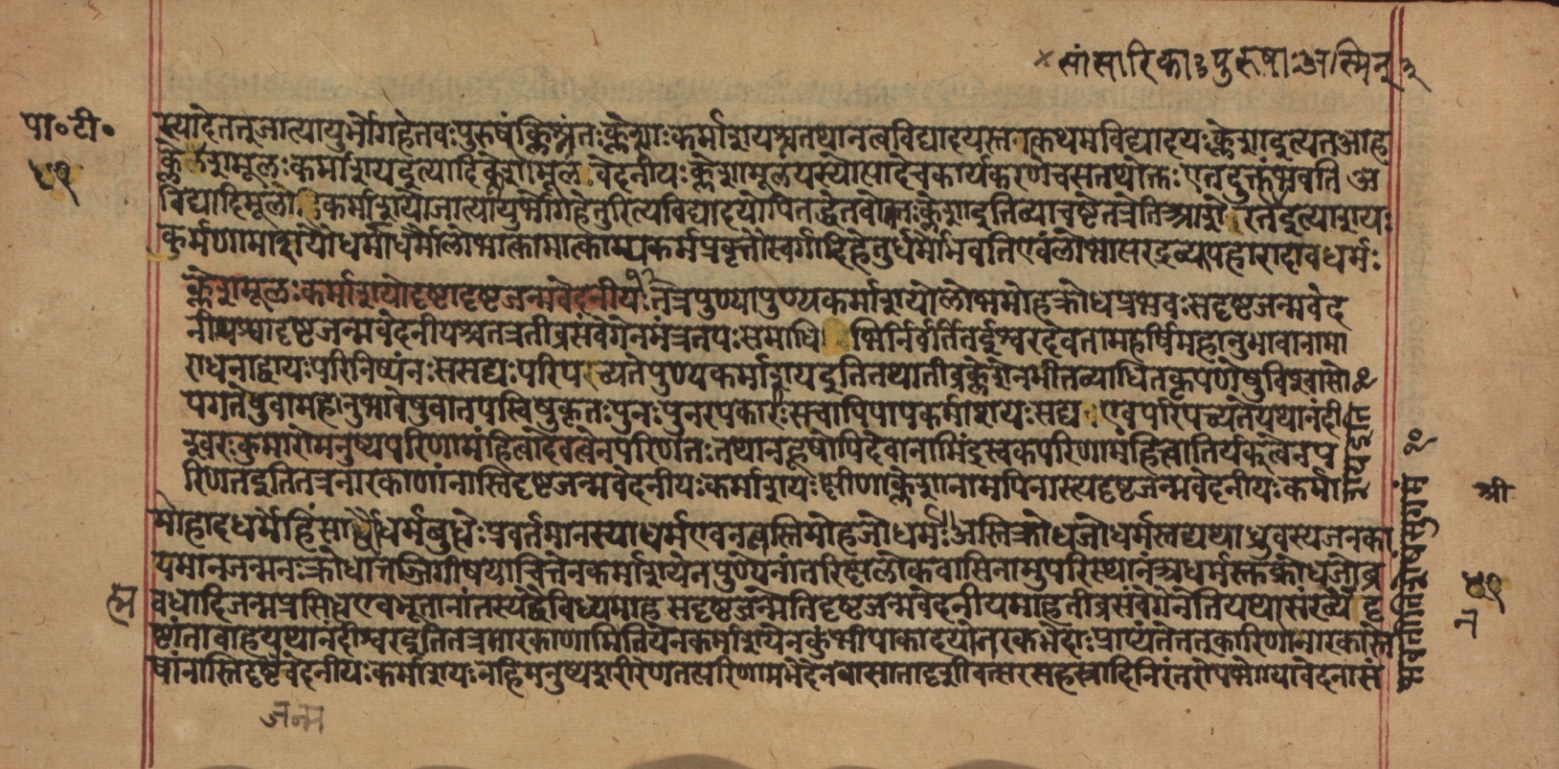 सांसारिकाः पुरुषाः अस्मिन्
पा॰टी॰
५१
स्यादेतत्जात्यायुर्भोगहेतवःपुरुषंक्लिश्नंतःक्लेशाःकर्माशयश्चतथानत्वविद्यादयस्तत्कथमविद्यादयःक्लेशाइत्यतआह
क्लेशमूलःकर्माशयइत्यादिक्लेशोमूलं वेदनीयःक्लेशामूलंयस्योत्पादेचकार्यकरणेचसतथोक्तःएतदुक्तंभवति अ
विद्यादिमूलोहिकर्माशयोजात्यायुर्भोगहेतुरित्यविद्यादयोपितद्धेतवोतःक्लेशाइतिव्याचष्टेतत्रेतिआशेरतेइत्याशयः
कर्मणामाशयोधर्माधर्मौलोभात्कामात्काम्यकर्मप्रवृत्तौस्वर्गादिहेतुर्धर्मोभवतिएवंलोभात्परद्रव्यपहारादावधर्मः
क्लेशमूलःकर्माशयोदृष्टादृष्टजन्मवेदनीयः तत्रपुण्यापुण्यकर्माशयोलोभमोहक्रोधप्रभवः सदृष्टजन्मवेद
नीयश्चादृष्टजन्मवेदनीयश्चतत्रतीव्रसंवेगेनमंत्रतपःसमाधिभिर्निर्वर्तितईश्वरदेवतामहर्षिमहानुभावानामा
राधनाद्वायःपरिनिष्पंनःससद्यःपरिपच्यतेपुण्यकर्माशयइतितथातीव्रक्लेशेनभीतव्याधितकृपणेषुविश्वासो
पगतेषुवामहानुभावेषुवातपस्विषुकृतःपुनःपुनरपकारःसचापिपापकर्माशयः सद्य एवपरिपच्यतेयथानंदी
श्वरःकुमारोमनुष्यपरिणामंहित्वादेवत्वेनपरिणतःतथानहूषोपिदेवानामिंद्रस्वकंपरिणामंहित्वातिर्यक्त्वेनप
रिणतइतितत्रनारकाणांनास्तिदृष्टजन्मवेदनीयःकर्माशयःक्षीणक्लेशानामपिनास्त्यदृष्टजन्मवेदनीयःकर्मा
श्री
मोहादधर्मेहिंसादौधर्मबुद्धेःप्रवर्तमानस्याधर्मएवनत्वस्तिमोहजोधर्मःअस्तिक्रोधजोधर्मस्तद्यथाध्रुवस्यजनका
यमानजन्मनःक्रोधात्तज्जिगीषयाचित्तेनकर्माशयेनपुण्येनांतरिक्षलोकवासिनामुपरिस्थानंअधर्मस्तुक्रोधजोब्र
ह्म वधादिजन्मप्रसिद्धएवभूतानांतस्यद्वैविध्यमाह सदृष्टजन्मेतिदृष्टजन्मवेदनीयमाहतीव्रसंवेगेनेतियथासंख्यं दृ
५१
ष्टांतावाहयथानंदीश्वरइतितत्रनारकाणामितियेनकर्माशयेनकुंभीपाकादयोनरकभेदाःप्राप्यंतेतत्कारिणोनारकास्ते
षांनास्तिदृष्टवेदनीयःकर्माशयःनहिमनुष्यशरीरेणतत्परिणामभेदेनवासातादृशीवत्सरसहस्रादिनिरंतरोपभोग्यावेदनासं
जन्म